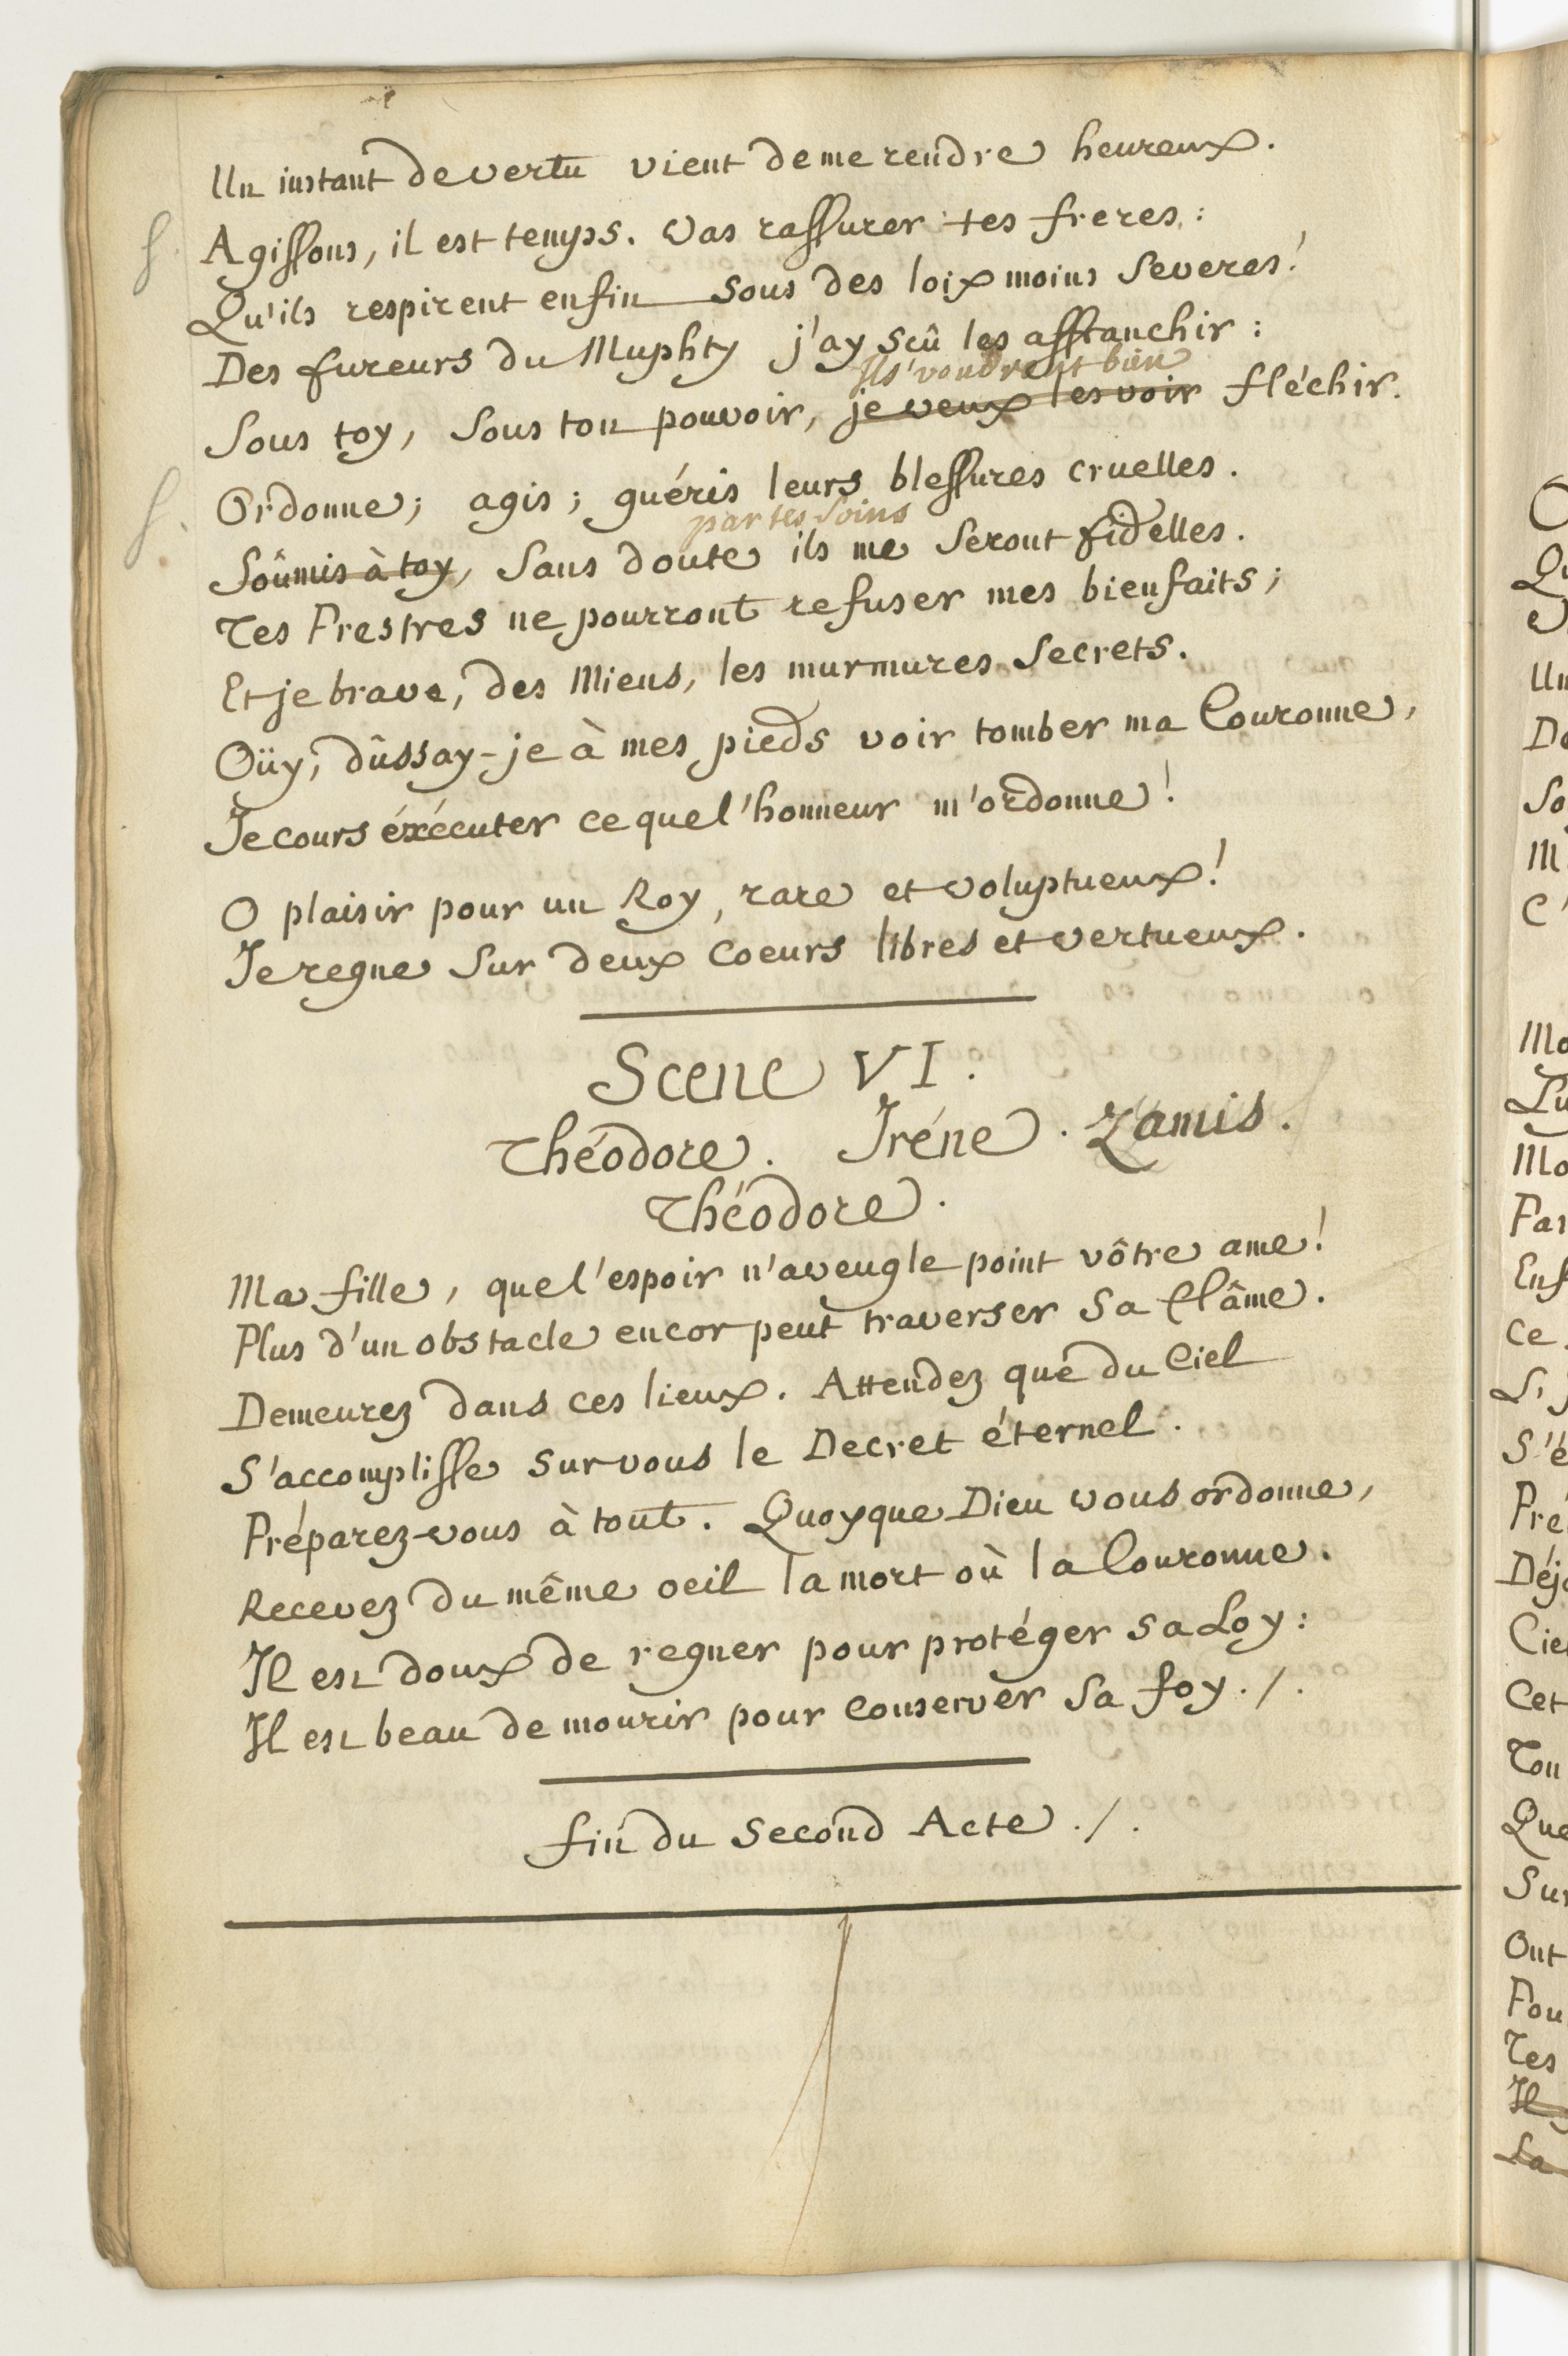 Un instant de vertu vient de me rendre heureux.
Agissons, il est temps. Vas rassurer tes freres:
Qu'ils respirent enfin sous des loix moins severes!
Des fureurs du Muphty j'ay sçû les affranchir:
Ils voudront bien
Sous toy, sous ton pouvoir, je veux les voir fléchir.
Ordonne; agis; guéris leurs blessures cruelles.
par tes soins
Soûmis à toy, sans doute ils me seront fidelles.
Tes Prestres ne pourront refuser mes bienfaits;
Et je brave, des Miens, les murmures secrets.
Oüy, dûssay-je à mes pieds voir tomber ma Couronne,
Je cours éxécuter ce que l'honneur m'ordonne!
O plaisir pour un Roy, rare et voluptueux!
Je regne sur deux Coeurs libres et vertueux.
Scene VI.
Théodore. Iréne. Zamis.
Théodore.
Ma fille, que l'espoir n'aveugle point vôtre ame!
Plus d'un obstacle encor peut traverser sa flâme.
Demeurez dans ces lieux. Attendez que du Ciel
S'accomplisse sur vous le Decret éternel.
Préparez-vous à tout. Quoyque Dieu vous ordonne,
Recevez du même oeil la mort où la Couronne.
Il est doux de regner pour protéger sa Loy:
Il est beau de mourir pour conserver sa foy./.
fin du second Acte./.